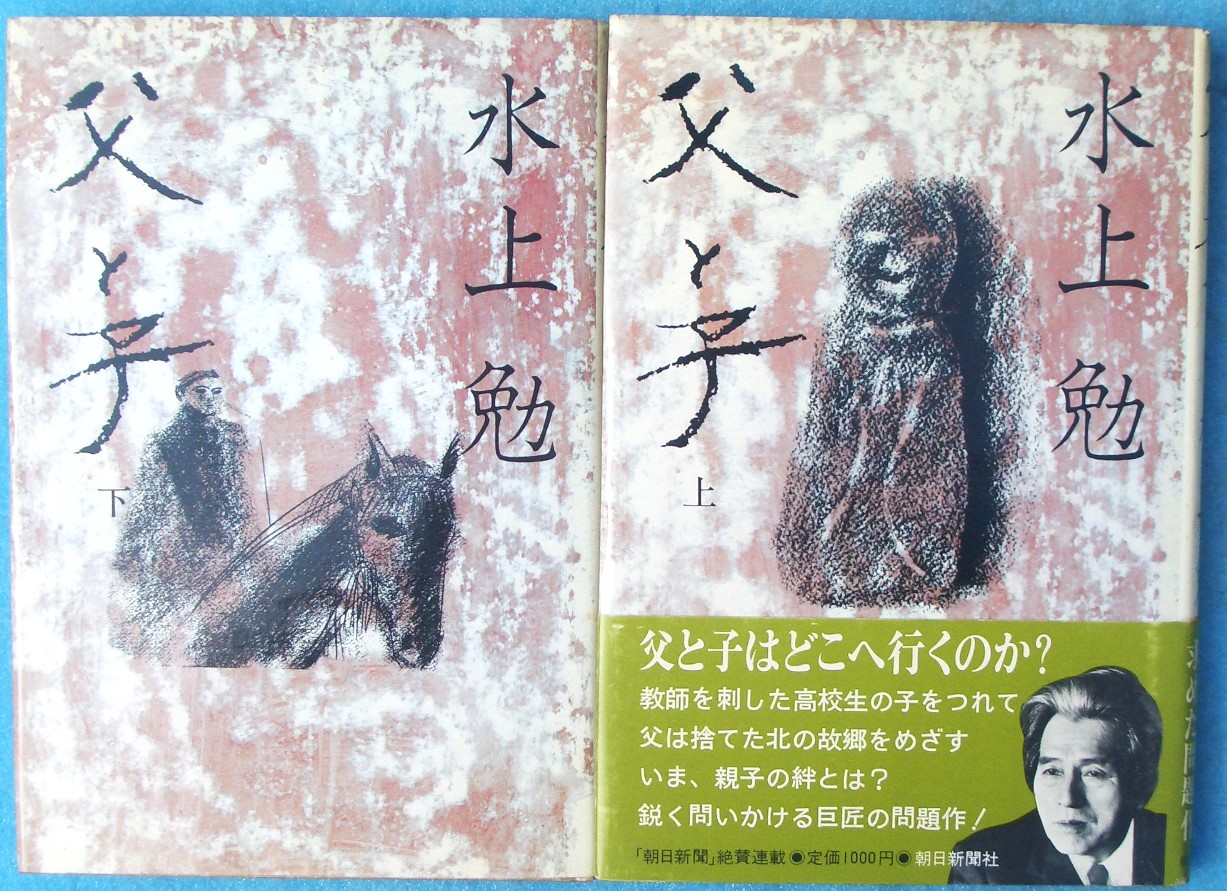 水上勉
父と子
下
水上勉
父と子
上
父と子はどこへ行くのか?
教師を刺した高校生の子をつれて
父は捨てた北の故郷をめざす
いま、親子の絆とは?
鋭く問いかける巨匠の問題作!
「朝日新聞」絶賛連載●定価1000円●朝日新聞社